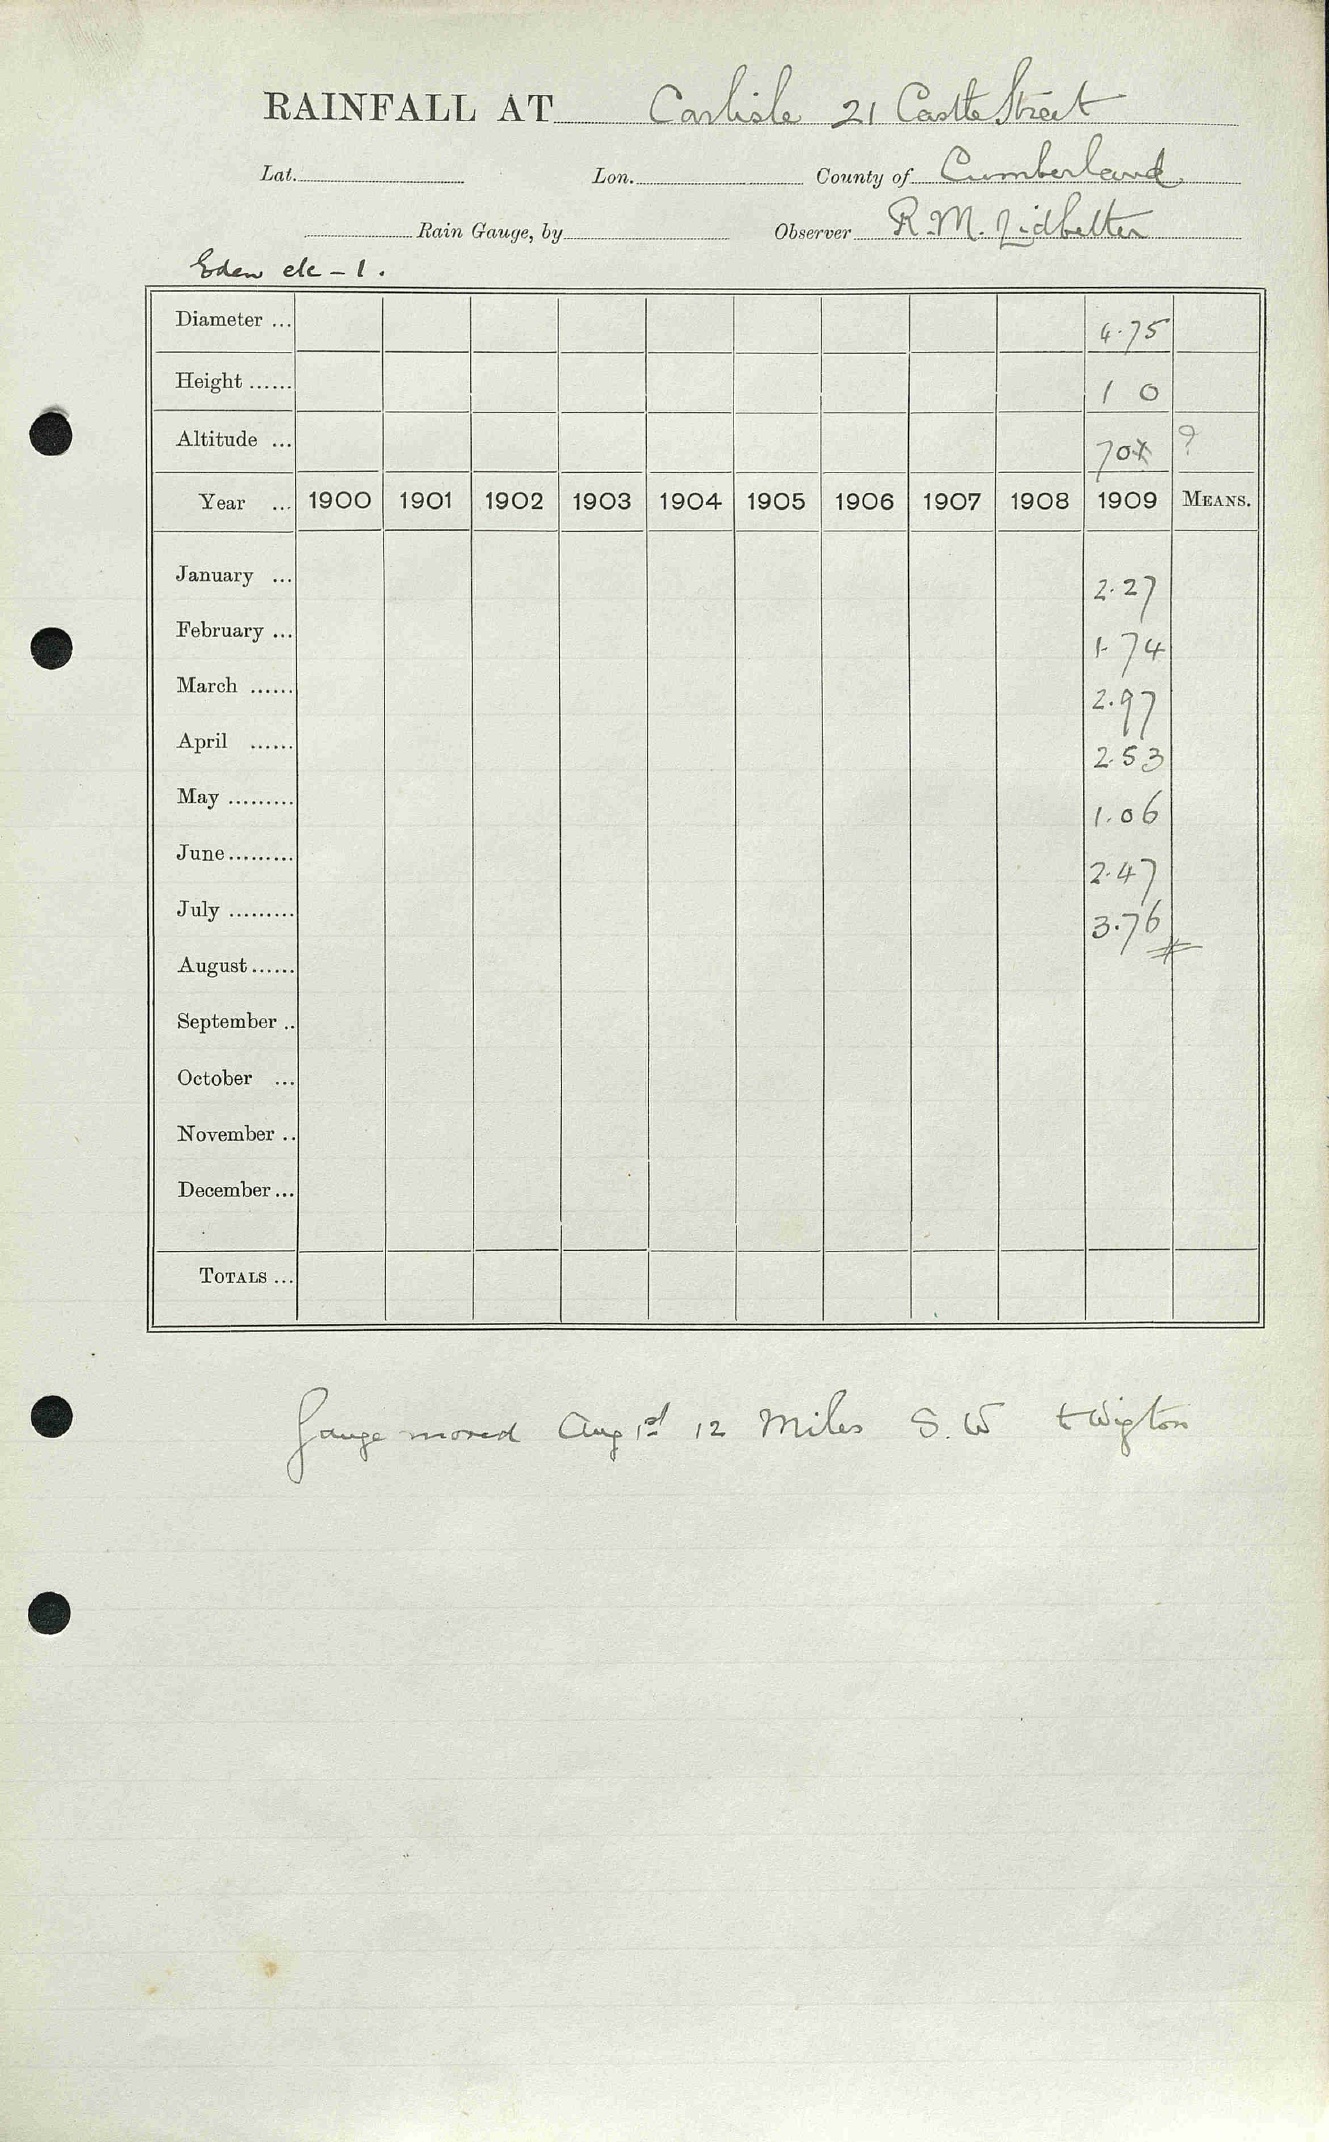 RAINFALL AT Carlisle 21 Castle Street
Lat. Lon. County of Cumberland
Rain Gauge, by Observer R. M. Lidbetter
Eden etc - 1.
Diameter ... 4.75
Height ...... 1 0
Altitude ... 70 ?
Year ... 1900 1901 1902 1903 1904 1905 1906 1907 1908 1909 MEANS.
January ... 2.27
February ... 1.74
March ...... 2.97
April ...... 2.53
May ......... 1.06
June ......... 2.47
July ......... 3.76
August ......
September ..
October ...
November ..
December ...
TOTALS ...
Gauge moved Aug 1st 12 Miles S. W to Wigton